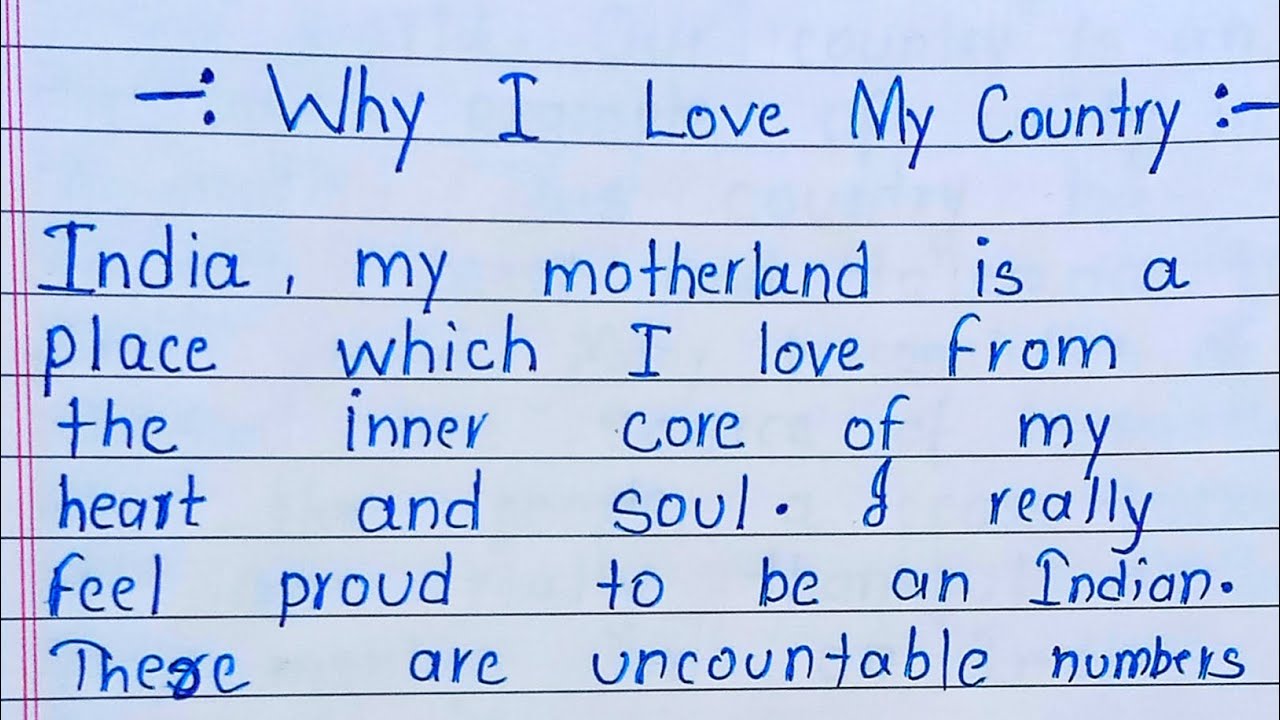 -: Why I Love My Country :-
India, my motherland is a
place which I love from
the inner core of my
heart and soul. I really
feel proud to be an Indian.
There are uncountable numbers